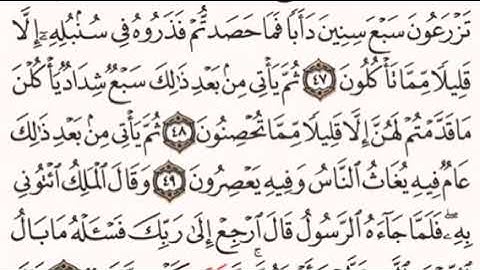 تَزْرَعُونَ سَبْعَ سِنِينَ دَأَبًا فَمَا حَصَدتُّمْ فَذَرُوهُ فِى سُنۢبُلِهِۦٓ إِلَّا
قَلِيلًا مِّمَّا تَأْكُلُونَ ٤٧ ثُمَّ يَأْتِى مِنۢ بَعْدِ ذَٰلِكَ سَبْعٌ شِدَادٌ يَأْكُلْنَ
مَا قَدَّمْتُمْ لَهُنَّ إِلَّا قَلِيلًا مِّمَّا تُحْصِنُونَ ٤٨ ثُمَّ يَأْتِى مِنۢ بَعْدِ ذَٰلِكَ
عَامٌ فِيهِ يُغَاثُ ٱلنَّاسُ وَفِيهِ يَعْصِرُونَ ٤٩ وَقَالَ ٱلْمَلِكُ ٱئْتُونِى
بِهِۦ فَلَمَّا جَآءَهُ ٱلرَّسُولُ قَالَ ٱرْجِعْ إِلَىٰ رَبِّكَ فَسْـَٔلْهُ مَا بَالُ